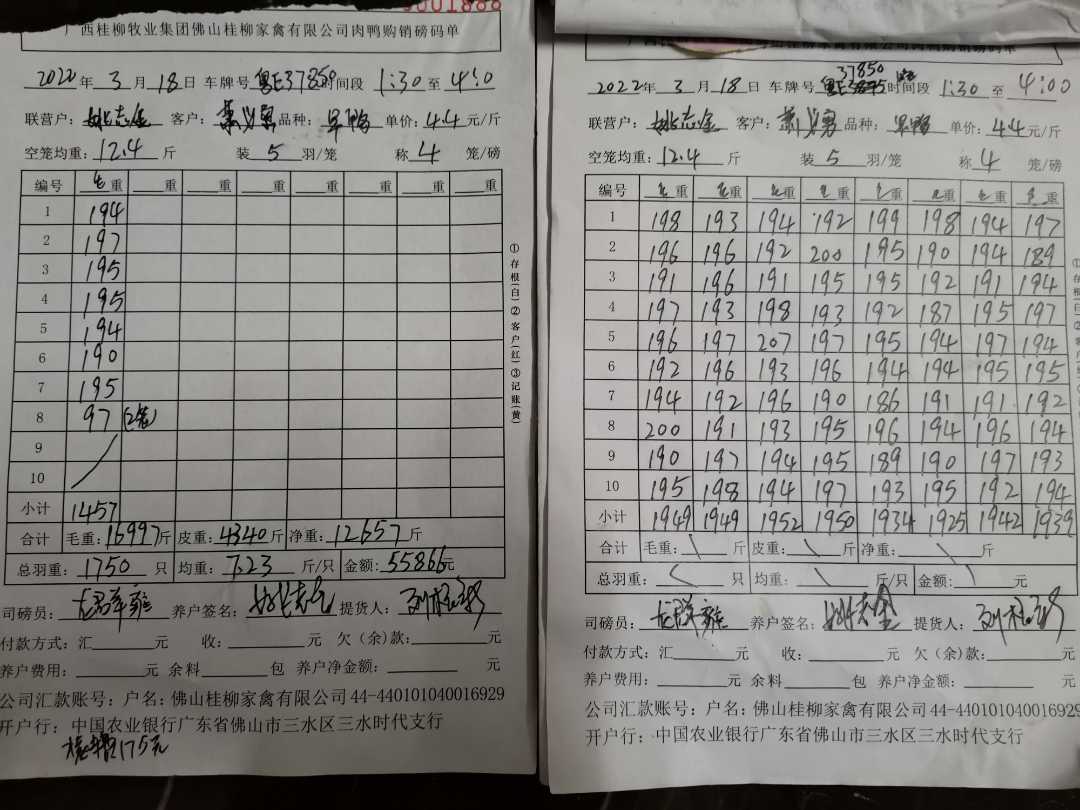 广西桂柳牧业集团佛山桂柳家禽有限公司肉鸭购销磅码单
2022年 3 月 18 日 车牌号 粤E37850 时间段 1:30 至 4:0
联营户: 姚志金 客户: 萧义勇 品种: 单价: 4.4 元/斤
空笼均重: 12.4 斤 装 5 羽/笼 称 4 笼/磅
编号 毛重 重 重 重 重 重 重 重
1 194
2 197
3 195
4 195
5 194
6 190
7 195
8 97 (2笼)
9
10
小计 1457
合计 毛重: 16997 斤 皮重: 4340 斤 净重: 12657 斤
总羽重: 1750 只 均重: 7.23 斤/只 金额: 55866 元
司磅员: 养户签名: 姚志金 提货人:
付款方式: 汇 元 收: 元 欠(余)款: 元
养户费用: 元 余料 包 养户净金额: 元
公司汇款账号: 户名: 佛山桂柳家禽有限公司44-440101040016929
开户行: 中国农业银行广东省佛山市三水区三水时代支行
175元
①存根(白)②客户(红)③记账(黄)
37850
2022年 3 月 18 日 车牌号 时间段 1:30 至 4:00
联营户: 姚志金 客户: 萧义勇 品种: 单价: 4.4 元/斤
空笼均重: 12.4 斤 装 5 羽/笼 称 4 笼/磅
编号 毛重 毛重 毛重 毛重 毛重 毛重 毛重 毛重
1 198 193 194 192 199 198 194 197
2 196 196 192 200 195 190 194 189
3 191 196 191 195 195 192 191 194
4 197 193 198 193 192 187 195 197
5 196 197 207 197 195 194 197 194
6 192 196 193 196 194 194 195 195
7 194 192 196 190 186 191 191 192
8 200 191 193 195 196 194 196 194
9 190 197 194 195 189 190 197 193
10 195 198 194 197 193 195 192 194
小计 1949 1949 1952 1950 1934 1925 1942 1939
合计 毛重: 斤 皮重: 斤 净重: 斤
总羽重: 只 均重: 斤/只 金额: 元
司磅员: 养户签名: 姚志金 提货人:
付款方式: 汇 元 收: 元 欠(余)款: 元
养户费用: 元 余料 包 养户净金额: 元
公司汇款账号: 户名: 佛山桂柳家禽有限公司44-440101040016929
开户行: 中国农业银行广东省佛山市三水区三水时代支行